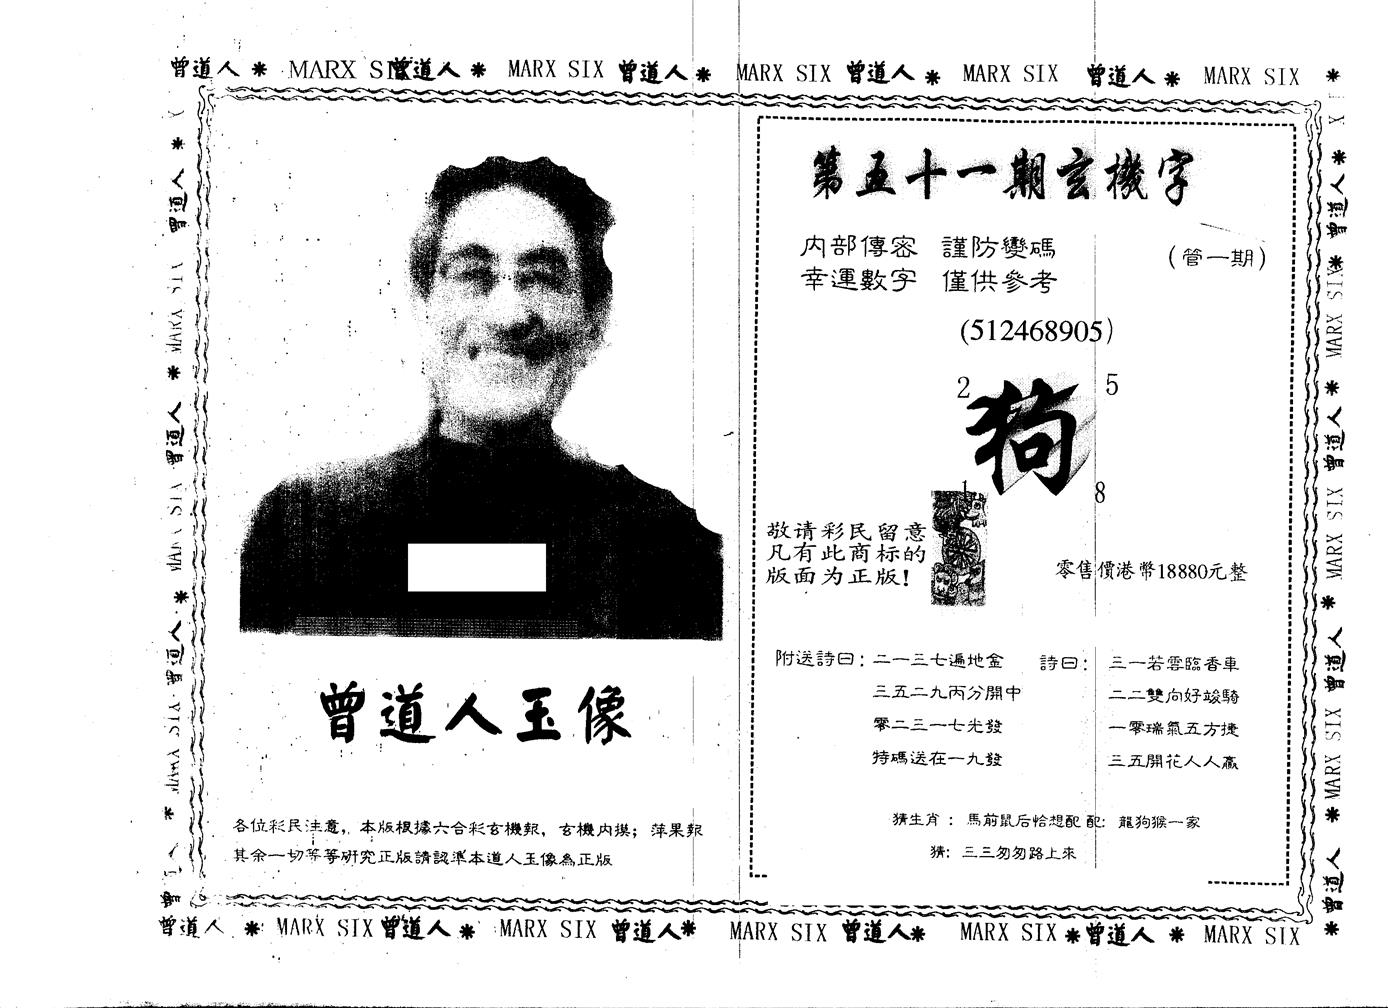 曾道人 * MARX SIX 曾道人 * MARX SIX 曾道人 * MARX SIX 曾道人 * MARX SIX 曾道人 * MARX SIX *
第五十一期玄機字
内部傳密 謹防變碼
幸運數字 僅供參考
(管一期)
(512468905)
2 5
狗
1 8
敬请彩民留意
凡有此商标的
版面为正版!
零售價港幣18880元整
附送詩曰: 二一三七遍地金
三五二九丙分開中
零二三一七光發
特碼送在一九發
詩曰: 三一若雲臨香車
二二雙向好竣騎
一零瑞氣五方捷
三五開花人人贏
猜生肖: 馬前鼠后恰想配 配: 龍狗猴一家
猜: 三三匆匆路上來
曾道人玉像
各位彩民注意, 本版根據六合彩玄機報, 玄機内摸; 萍果報
其余一切等等研究正版請認準本道人玉像為正版
曾道人 * MARX SIX 曾道人 * MARX SIX 曾道人 * MARX SIX 曾道人 * MARX SIX * 曾道人 * MARX SIX *
曾道人 * MARX SIX 曾道人 * MARX SIX 曾道人 * MARX SIX 曾道人 *
曾道人 * MARX SIX 曾道人 * MARX SIX 曾道人 * MARX SIX 曾道人 *